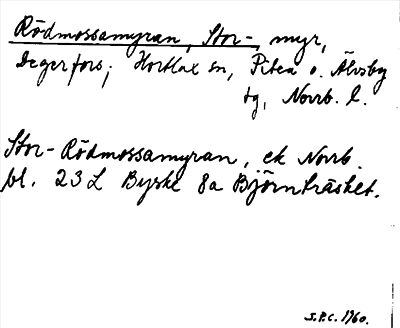 Rödmossamyran, Stor-, myr,
Degerfors; Hortlax sn, Piteå o. Älvsby
tg, Norrb. l.
Stor-Rödmossamyran, ek Norrb.
bl. 23 L Byske 8a Björnträsket.
S.P.C. 1960.